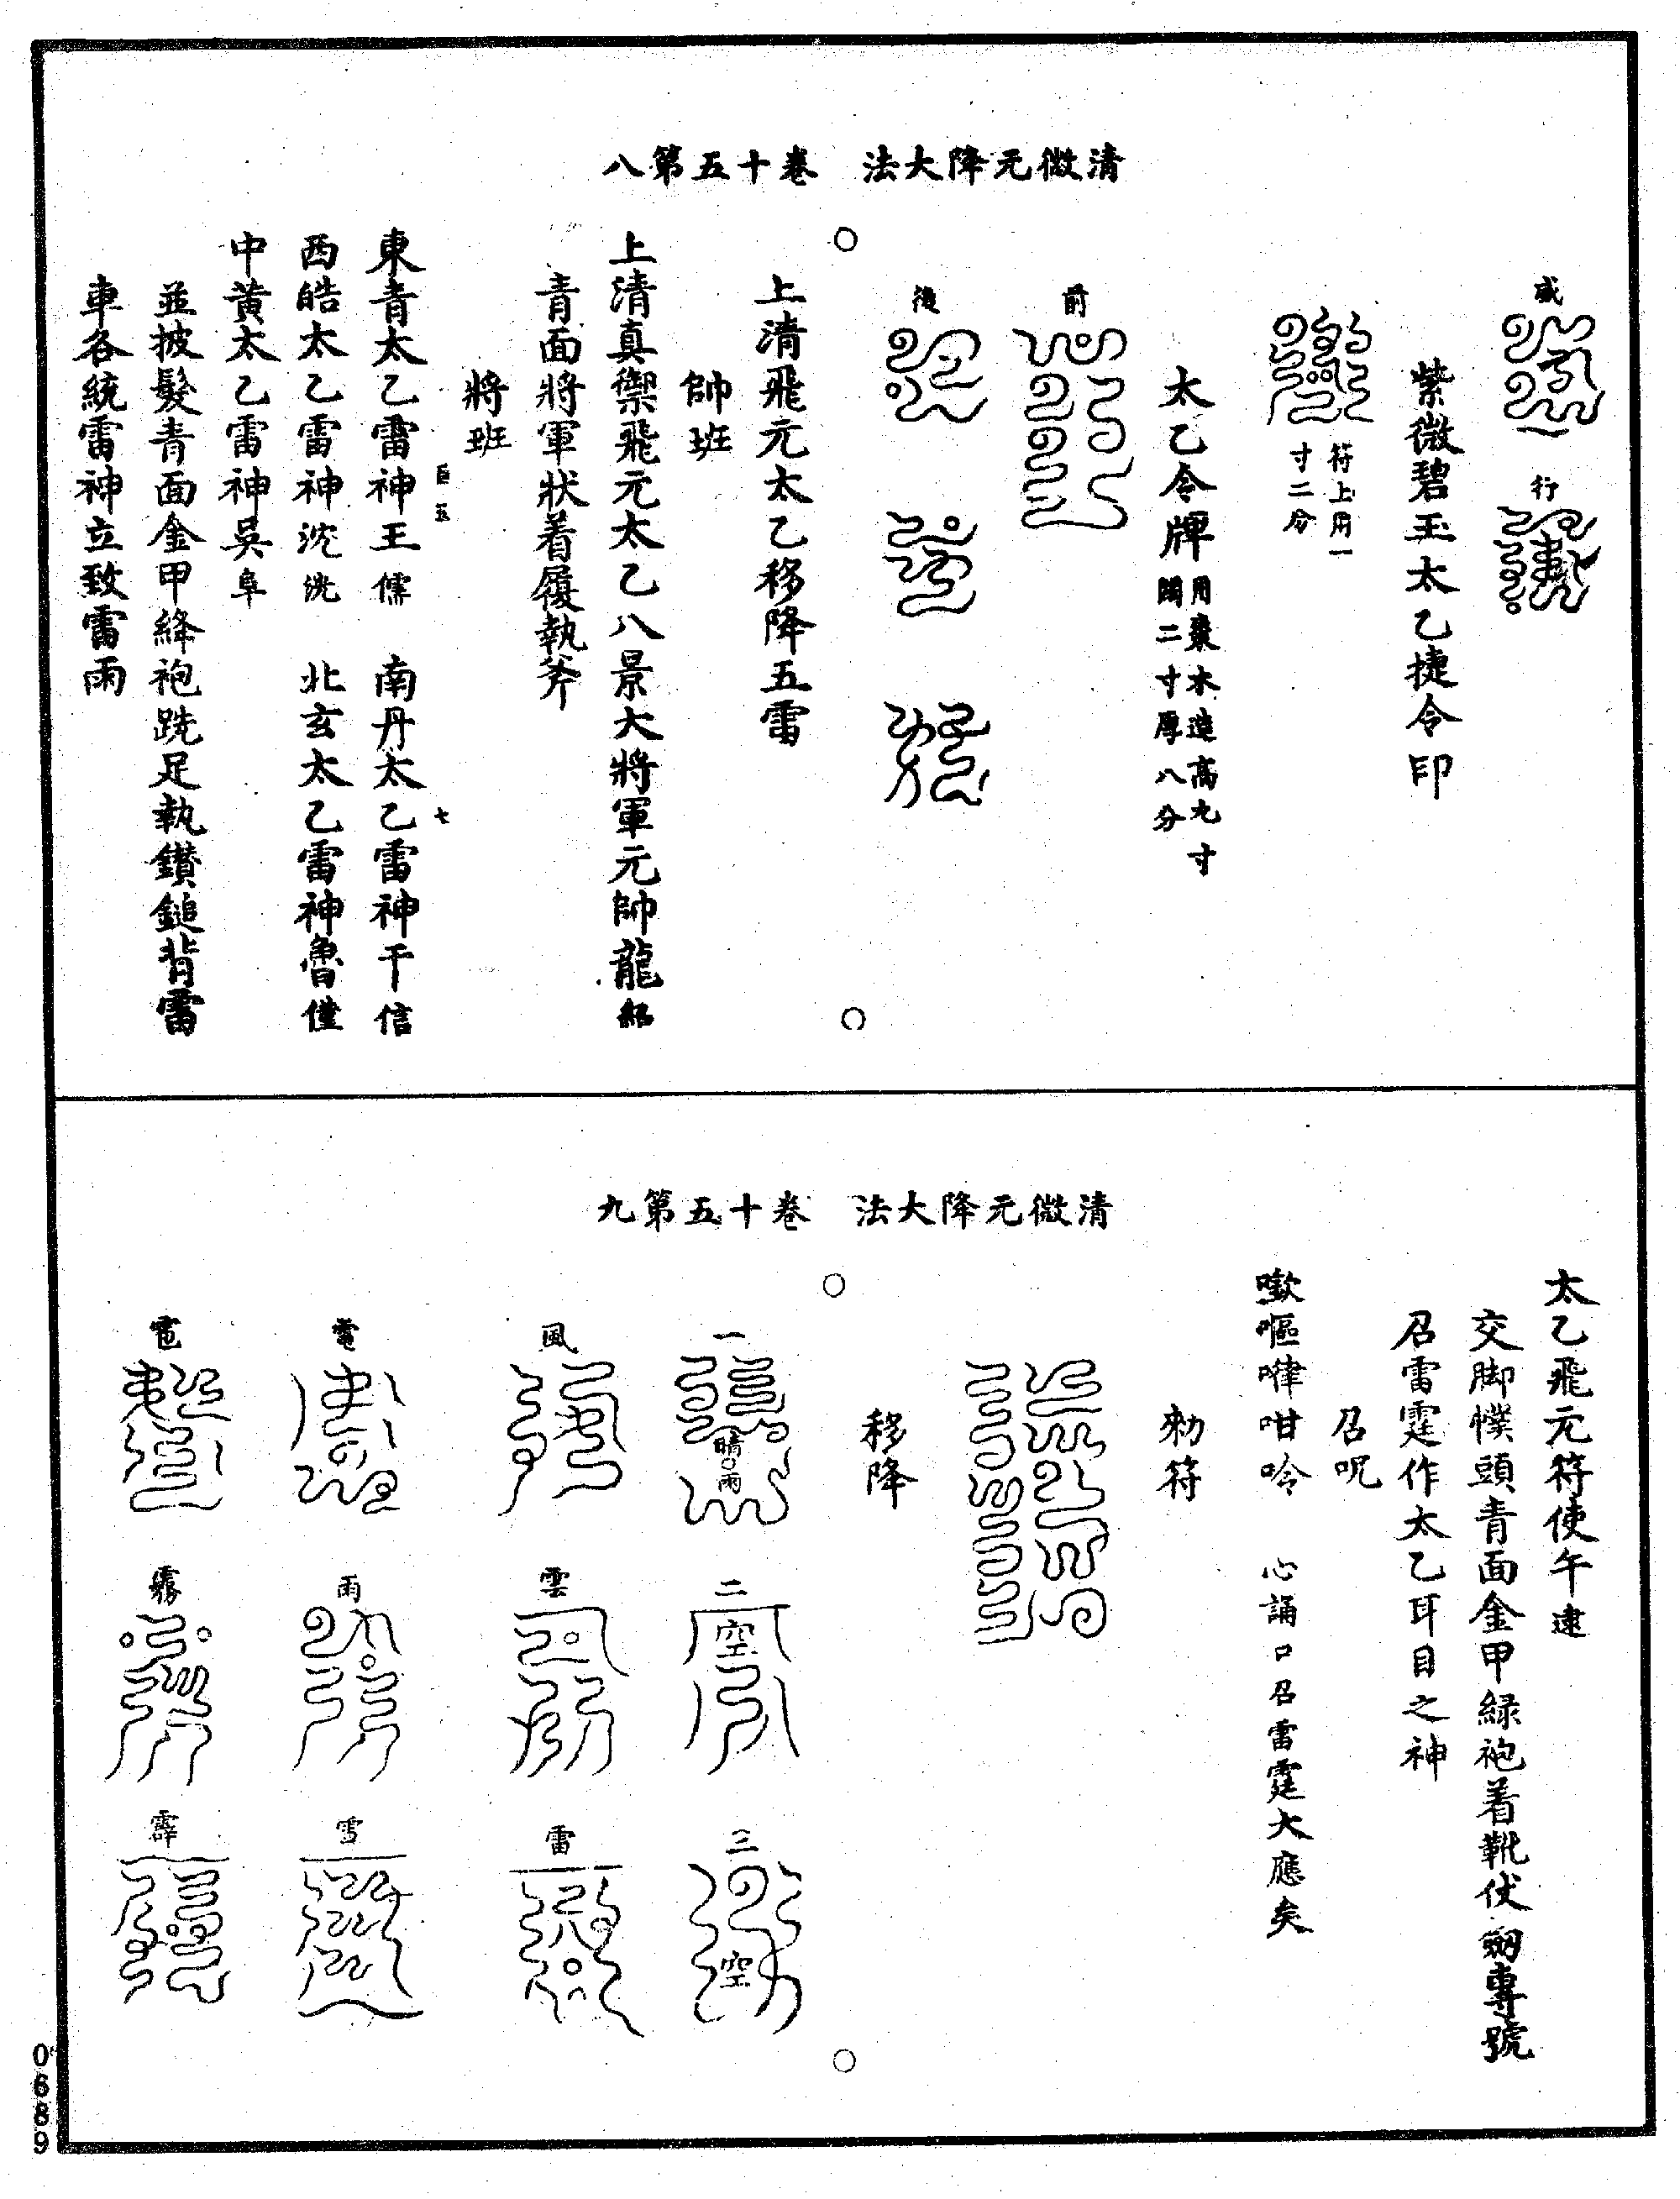 清微元降大法　卷十五第八
威
行
紫微碧玉太乙捷令印
符上用一
寸二分
太乙令牌 用棗木造高九寸
闊二寸厚八分
前
後
上清飛元太乙移降五雷
帥班
上清真禦飛元太乙八景大將軍元帥龍紹
青面將軍狀着履執斧
將班
七
東青太乙雷神王儒　南丹太乙雷神干信
西皓太乙雷神沈 北玄太乙雷神魯
中黃太乙雷神吳阜
並披髮青面金甲絳袍跣足執鑽鎚背雷
車各統雷神立致雷雨
清微元降大法　卷十五第九
太乙飛元符使午逮
交脚幞頭青面金甲緑袍着靴伏劒專號
召雷霆作太乙耳目之神
召呪
嘋嘔嘒咁唥　心誦口召雷霆大應矣
勑符
移降
一
晴○雨
二
空
三
空
風
雲
雷
電
雨
雪
雹
霧
霹
0689